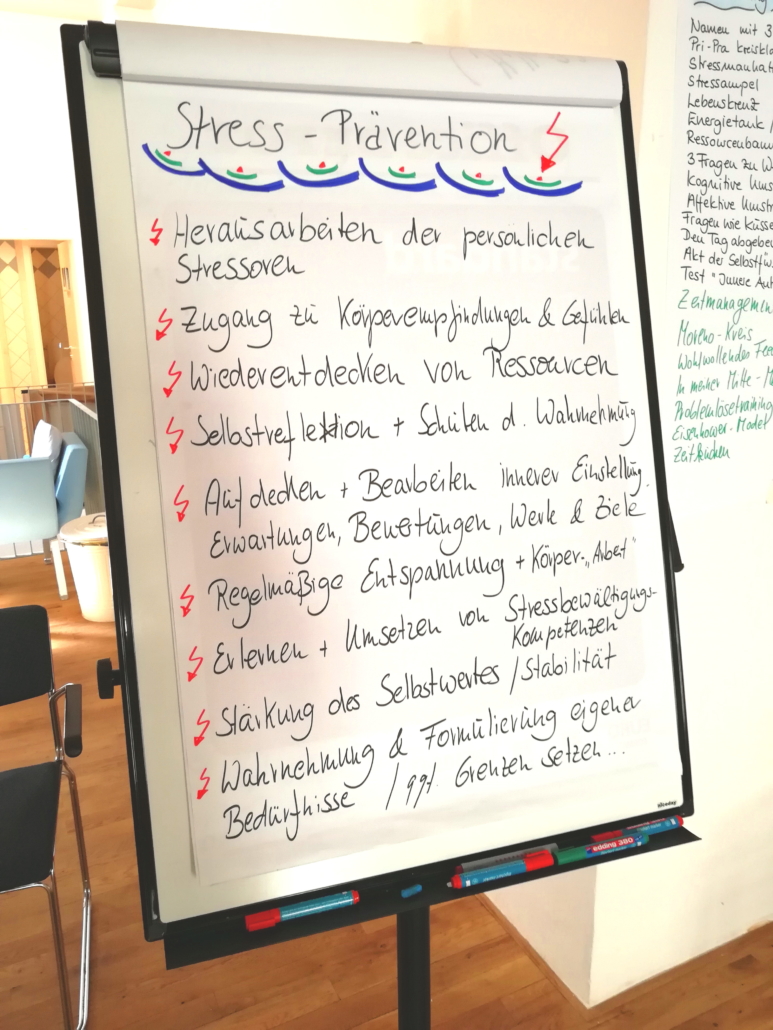 Stress - Prävention
Herausarbeiten der persönlichen
Stressoren
Zugang zu Körperempfindungen & Gefühlen
Wiederentdecken von Ressourcen
Selbstreflektion + Schulen d. Wahrnehmung
Aufdecken + Bearbeiten innerer Einstellung.
Erwartungen, Bewertungen, Werte & Ziele
Regelmäßige Entspannung + Körper-„Arbeit“
Erlernen + Umsetzen von Stressbewältigungs-
Kompetenzen
Stärkung des Selbstwertes / Stabilität
Wahrnehmung & Formulierung eigener
Bedürfnisse / ggf. Grenzen setzen...
Namen mit 3
Pri-Pra
Stressampel
Lebenskreuz
Energietank /
Ressourcenbaum
3 Fragen zu
Kognitive Ums
Affektive Umst
Fragen wie
Den Tag
Akt der Selbst
Test "Innere Ant
Zeitmanagemen
Moreno-Kreis
Wohlwollendes Fee
In meiner Mitte - M
Problemlösetraining
Eisenhower-Model
edding 380